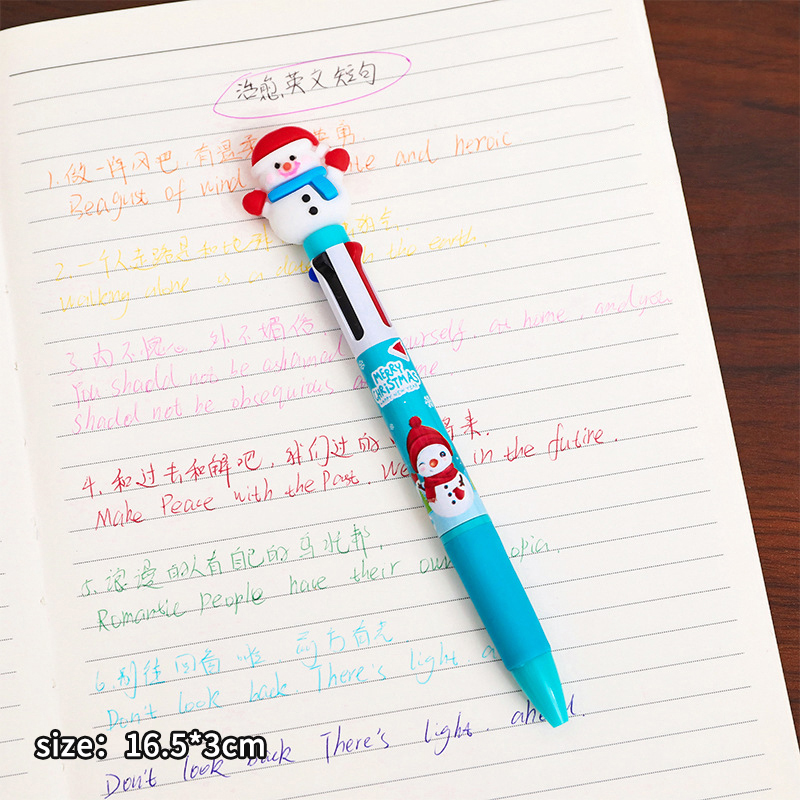 治愈英文短句
1. 做一阵风吧,有温柔 勇.
Be a gust of wind and heroic
2. 一个人走路是和地
Walking alone is a in the earth.
3. 内不愧心,外不媚俗,
You should not be ashamed yourself at home, and you
should not be obsequious
4. 和过去和解吧,我们过的 将来.
Make Peace with the Past. We in the future.
5. 浪漫的人有自己的乌托邦,
Romantic People have their own opia,
6. 别往回看 啦, 前方有光.
Don't look back. There's light
Don't look back There's light. ahead.
MERRY
CHRISTMAS
HAPPY NEW YEAR
size: 16.5*3cm